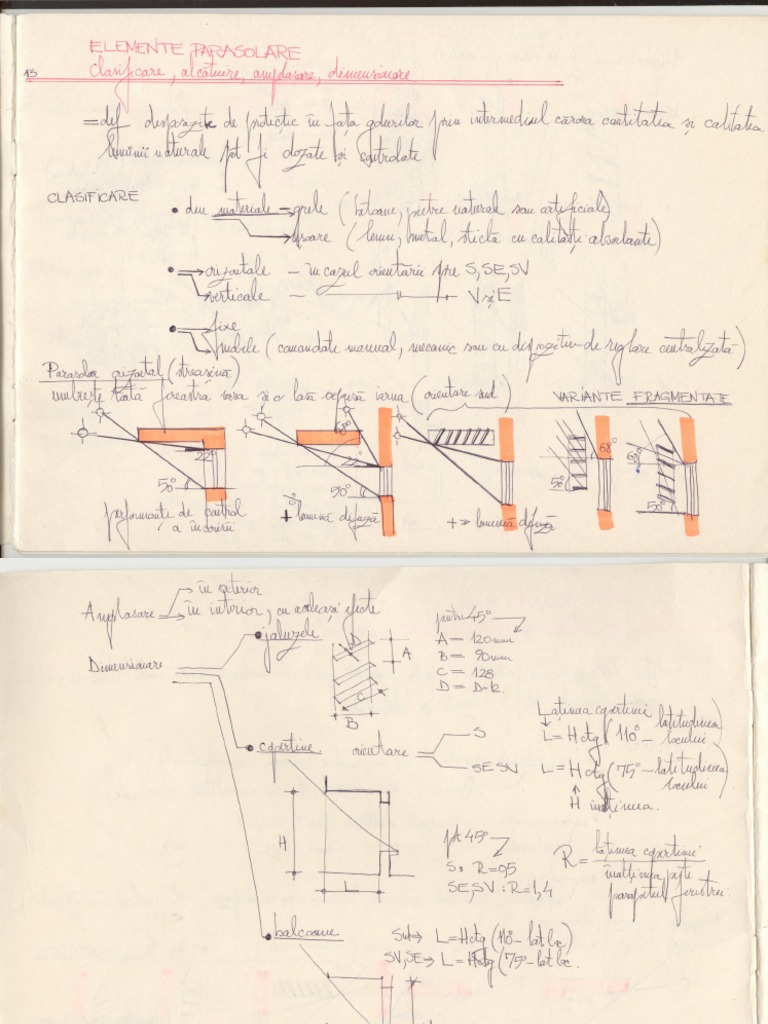 ELEMENTE PARASOLARE
13
clasificare, alcătuire, amplasare, dimensionare
= def dispozitive de protecție în fața golurilor prin intermediul cărora cantitatea și calitatea
luminii naturale pot fi dozate și controlate
CLASIFICARE
• din materiale grele (betoane, pietre naturale sau artificiale)
ușoare (lemn, metal, sticlă cu calități absorbante)
• orizontale - în cazul orientării spre S, SE, SV
verticale - V și E
• fixe
mobile (comandate manual, mecanic sau cu dispozitiv de reglare centralizată)
Parasolar orizontal (streașină)
umbrește toată fereastra vara și o lasă expusă iarna (orientare sud)
VARIANTE FRAGMENTATE
22°
50°
68°
22°
50°
68°
50°
68°
50°
performanțe de control
a însoririi
+ lumină difuză
+ > lumină difuză
Amplasare în exterior
în interior, cu aceleași efecte
Dimensionare
• jaluzele
D
A
C
B
pentru 45°
A = 120mm
B = 90mm
C = 128
D =
• copertine orientare S
SE SV
Lățimea copertinei
L = H ctg (110° - latitudinea locului)
L = H ctg (75° - latitudinea locului)
H înălțimea
H
L
pt 45°
S: R = 0,5
SE, SV: R = 1,4
R = lățimea copertinei
înălțimea peste
parapetul ferestrei
• balcoane
Sud → L = H ctg (110° - lat loc)
SV, SE → L = H ctg (75° - lat loc